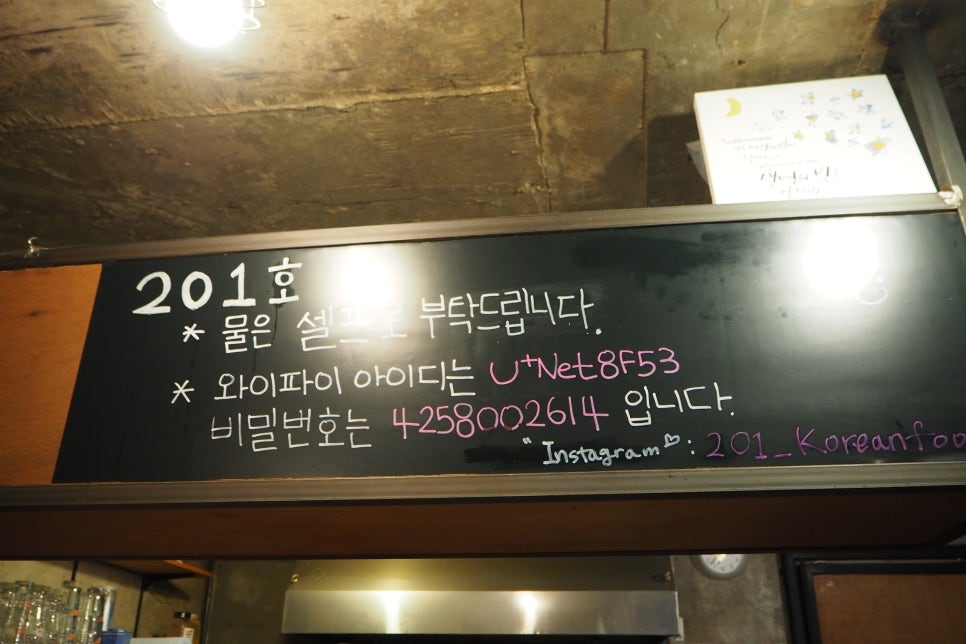 201호
* 물은 셀프로 부탁드립니다.
* 와이파이 아이디는 U+Net8F53
비밀번호는 4258002614 입니다.
"Instagram♡: 201_Koreanfoo